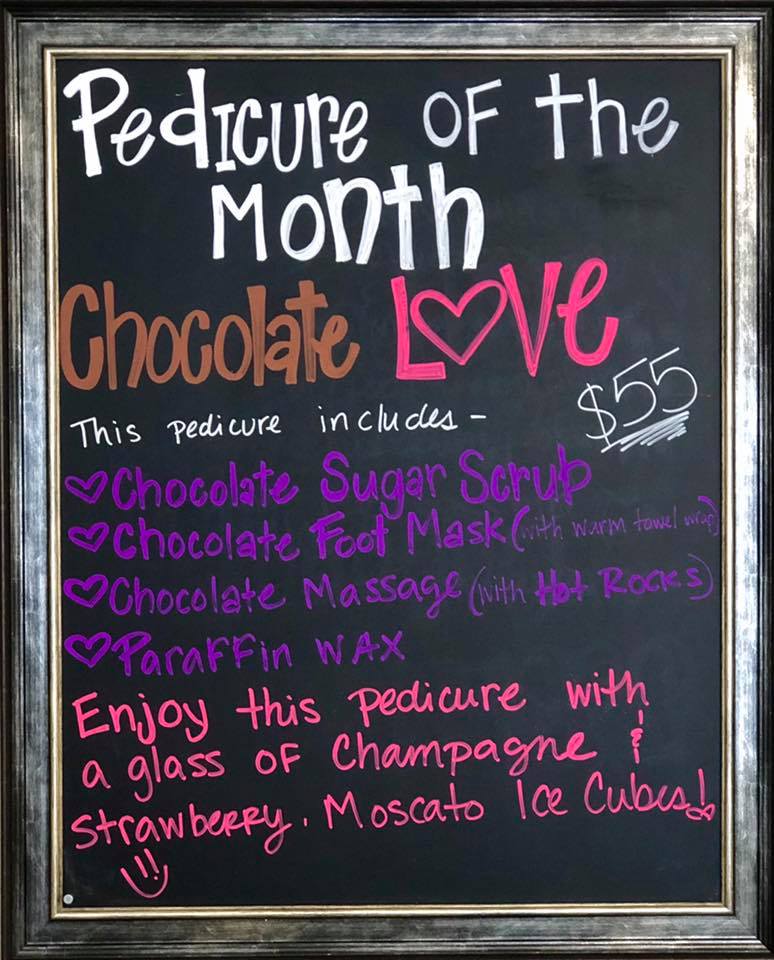 Pedicure OF the
Month
Chocolate LOVe
$55
This pedicure includes -
Chocolate Sugar Scrub
Chocolate Foot Mask (with warm towel wrap)
Chocolate Massage (with Hot Rocks)
Paraffin WAX
Enjoy this pedicure with
a glass OF Champagne &
Strawberry. Moscato Ice Cubes!